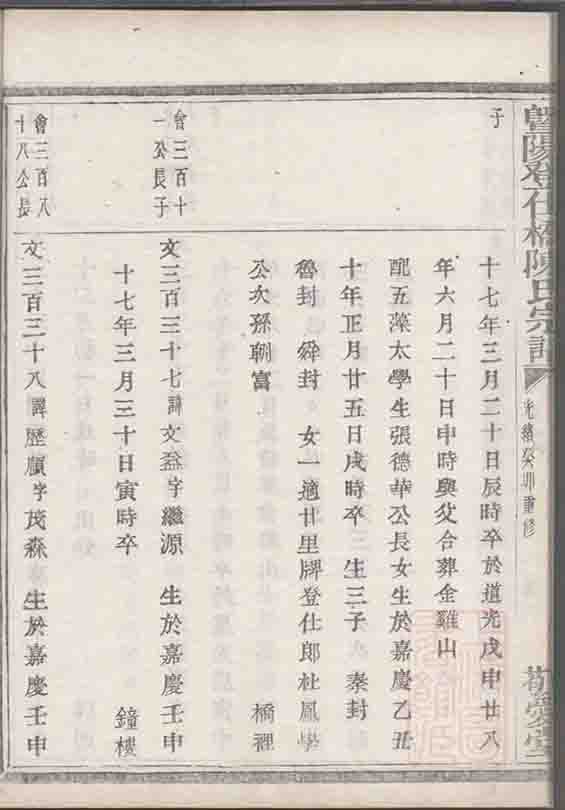 暨陽登仕橋陳氏宗譜
光緒癸卯重修
敬愛堂
子
十七年三月二十日辰時卒於道光戊申廿八
年六月二十日申時與父合葬金雞山
配五藻太學生張德華公長女生於嘉慶乙丑
十年正月廿五日戌時卒 生三子 泰封
魯封 舜封 女一適廿里牌登仕郎杜鳳學
公次孫 富 橋裡
會三百十
一公長子
文三百三十七諱文 字繼源 生於嘉慶壬申
十七年三月三十日寅時卒 鐘樓
會三百八
十八公長
文三百三十八諱歷願字茂森 生於嘉慶壬申